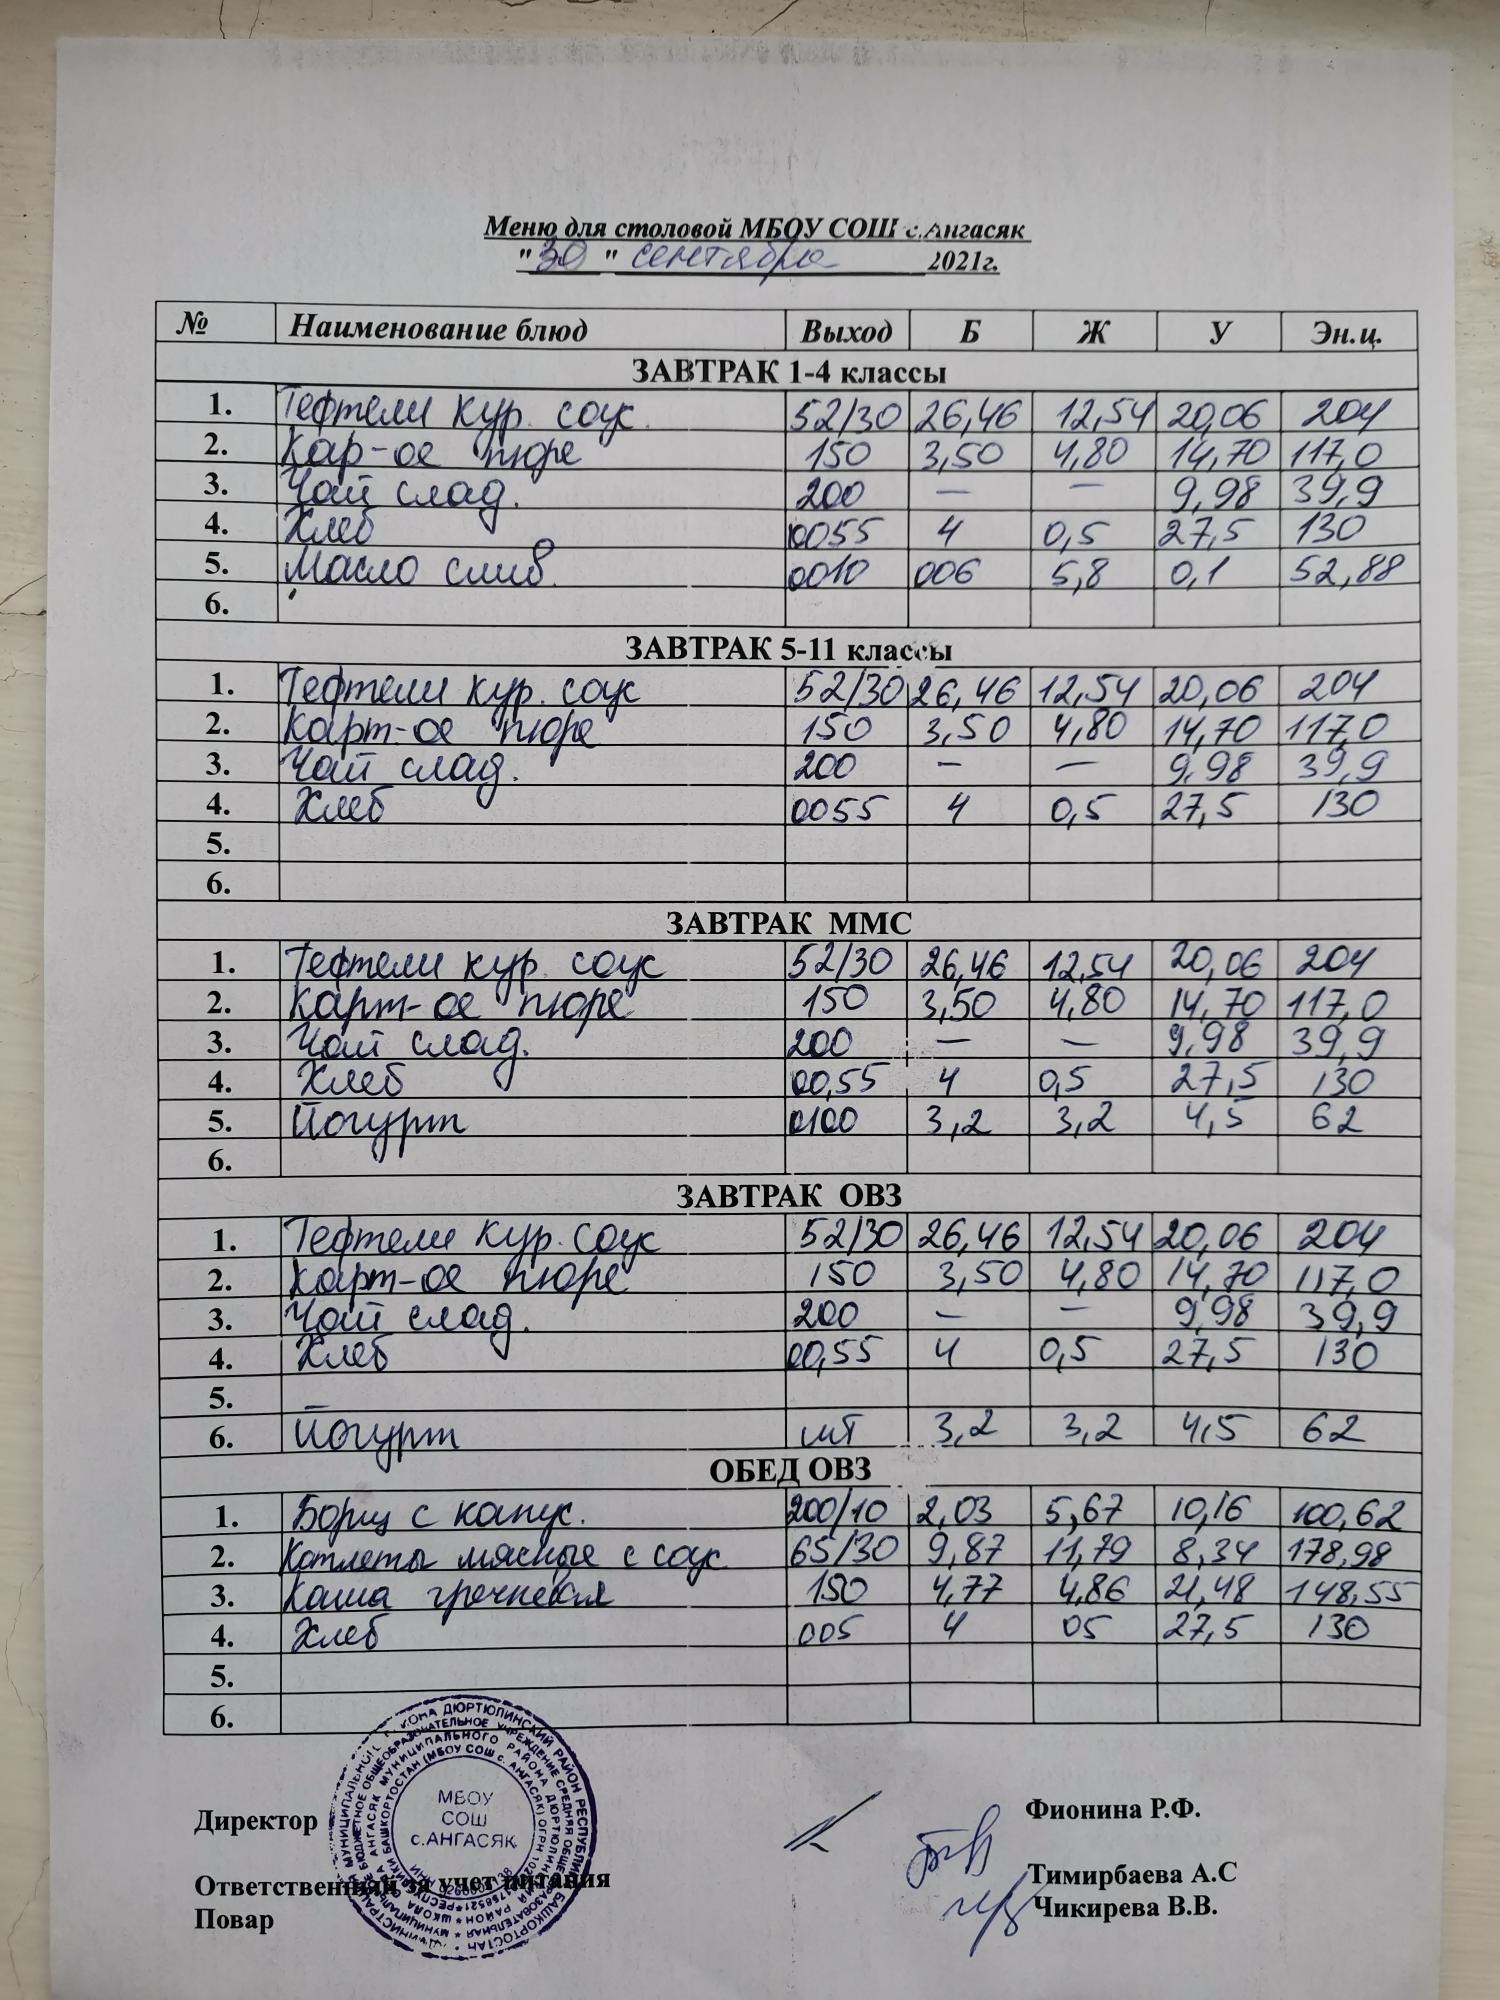 Меню для столовой МБОУ СОШ с.Ангасяк
"30" сентября 2021г.
№ Наименование блюд Выход Б Ж У Эн.ц.
ЗАВТРАК 1-4 классы
1. Тефтели кур. соус. 52/30 26,46 12,54 20,06 204
2. Кар-ое пюре 150 3,50 4,80 14,70 117,0
3. Чай слад. 200 — — 9,98 39,9
4. Хлеб 0055 4 0,5 27,5 130
5. Масло слив. 0010 006 5,8 0,1 52,88
6.
ЗАВТРАК 5-11 классы
1. Тефтели кур. соус 52/30 26,46 12,54 20,06 204
2. Карт-ое пюре 150 3,50 4,80 14,70 117,0
3. Чай слад. 200 — — 9,98 39,9
4. Хлеб 0055 4 0,5 27,5 130
5.
6.
ЗАВТРАК ММС
1. Тефтели кур. соус 52/30 26,46 12,54 20,06 204
2. Карт-ое пюре 150 3,50 4,80 14,70 117,0
3. Чай слад. 200 — — 9,98 39,9
4. Хлеб 00,55 4 0,5 27,5 130
5. Йогурт 0100 3,2 3,2 4,5 62
6.
ЗАВТРАК ОВЗ
1. Тефтели кур. соус 52/30 26,46 12,54 20,06 204
2. Карт-ое пюре 150 3,50 4,80 14,70 117,0
3. Чай слад. 200 — — 9,98 39,9
4. Хлеб 00,55 4 0,5 27,5 130
5.
6. Йогурт шт 3,2 3,2 4,5 62
ОБЕД ОВЗ
1. Борщ с капус. 200/10 2,03 5,67 10,16 100,62
2. Котлеты мясные с соус 65/30 9,87 11,79 8,34 178,98
3. Каша гречневая 150 4,77 4,86 21,48 148,55
4. Хлеб 005 4 05 27,5 130
5.
6.
Директор Фионина Р.Ф.
МБОУ
СОШ
с.АНГАСЯК
Ответственный за учет питания Тимирбаева А.С
Повар Чикирева В.В.